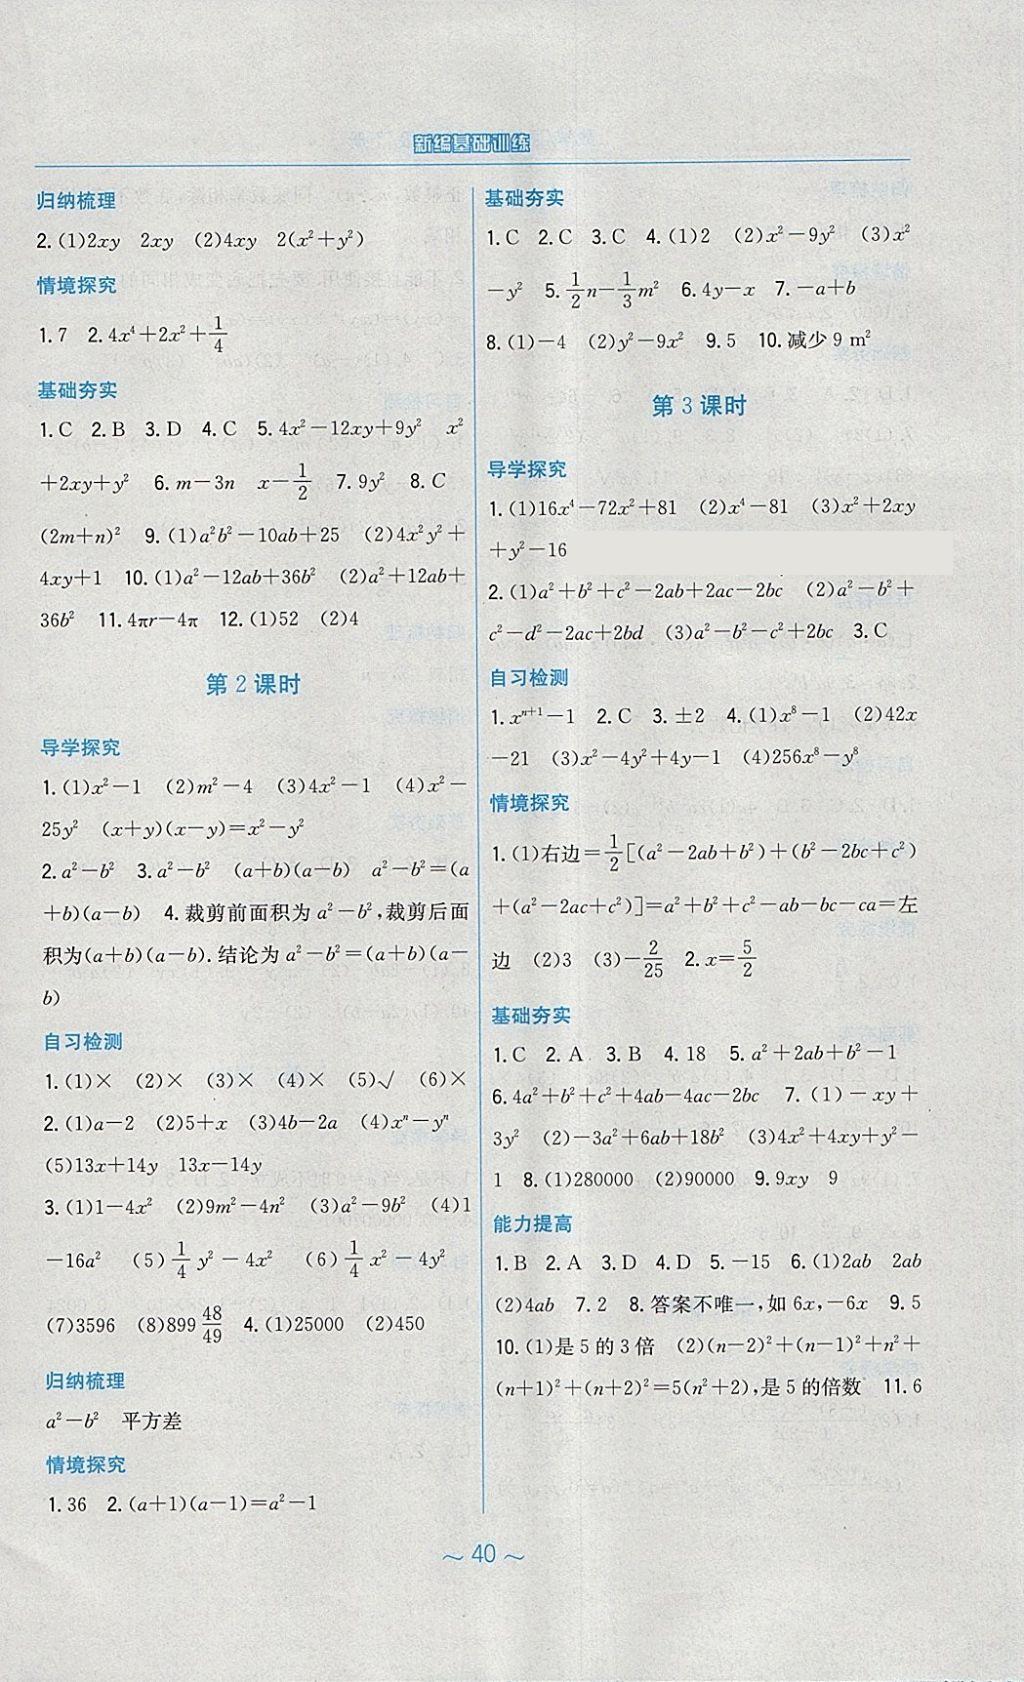 新编基础训练
归纳梳理
2.(1)2xy 2xy (2)4xy 2(x²+y²)
情境探究
1.7 2.4x⁴+2x²+1/4
基础夯实
1.C 2.B 3.D 4.C 5.4x²-12xy+9y² x²
+2xy+y² 6.m-3n x-1/2 7.9y² 8.C
(2m+n)² 9.(1)a²b²-10ab+25 (2)4x²y²+
4xy+1 10.(1)a²-12ab+36b² (2)a²+12ab+
36b² 11.4πr-4π 12.(1)52 (2)4
第2课时
导学探究
1.(1)x²-1 (2)m²-4 (3)4x²-1 (4)x²-
25y² (x+y)(x-y)=x²-y²
2.a²-b² 3.a²-b² (a+b)(a-b) a²-b²=(a
+b)(a-b) 4.裁剪前面积为a²-b²,裁剪后面
积为(a+b)(a-b).结论为a²-b²=(a+b)(a-
b)
自习检测
1.(1)× (2)× (3)× (4)× (5)√ (6)×
2.(1)a-2 (2)5+x (3)4b-2a (4)xⁿ-yⁿ
(5)13x+14y 13x-14y
3.(1)1-4x² (2)9m²-4n² (3)a²-9b² (4)1
-16a² (5)1/4y²-4x² (6)1/4x²-4y²
(7)3596 (8)899 48/49 4.(1)25000 (2)450
归纳梳理
a²-b² 平方差
情境探究
1.36 2.(a+1)(a-1)=a²-1
基础夯实
1.C 2.C 3.C 4.(1)2 (2)x²-9y² (3)x²
-y² 5.1/2n-1/3m² 6.4y-x 7.-a+b
8.(1)-4 (2)y²-9x² 9.5 10.减少9 m²
第3课时
导学探究
1.(1)16x⁴-72x²+81 (2)x⁴-81 (3)x²+2xy
+y²-16
2.(1)a²+b²+c²-2ab+2ac-2bc (2)a²-b²+
c²-d²-2ac+2bd (3)a²-b²-c²+2bc 3.C
自习检测
1.xⁿ⁺¹-1 2.C 3.±2 4.(1)x⁸-1 (2)42x
-21 (3)x²-4y²+4y-1 (4)256x⁸-y⁸
情境探究
1.(1)右边=1/2[(a²-2ab+b²)+(b²-2bc+c²)
+(a²-2ac+c²)]=a²+b²+c²-ab-bc-ca=左
边 (2)3 (3)-2/25 2.x=5/2
基础夯实
1.C 2.A 3.B 4.18 5.a²+2ab+b²-1
6.4a²+b²+c²+4ab-4ac-2bc 7.(1)-xy+
3y² (2)-3a²+6ab+18b² (3)4x²+4xy+y²-
1 8.(1)280000 (2)90000 9.9xy 9
能力提高
1.B 2.A 3.D 4.D 5.-15 6.(1)2ab 2ab
(2)4ab 7.2 8.答案不唯一,如6x,-6x 9.5
10.(1)是5的3倍 (2)(n-2)²+(n-1)²+n²+
(n+1)²+(n+2)²=5(n²+2),是5的倍数 11.6
～40～